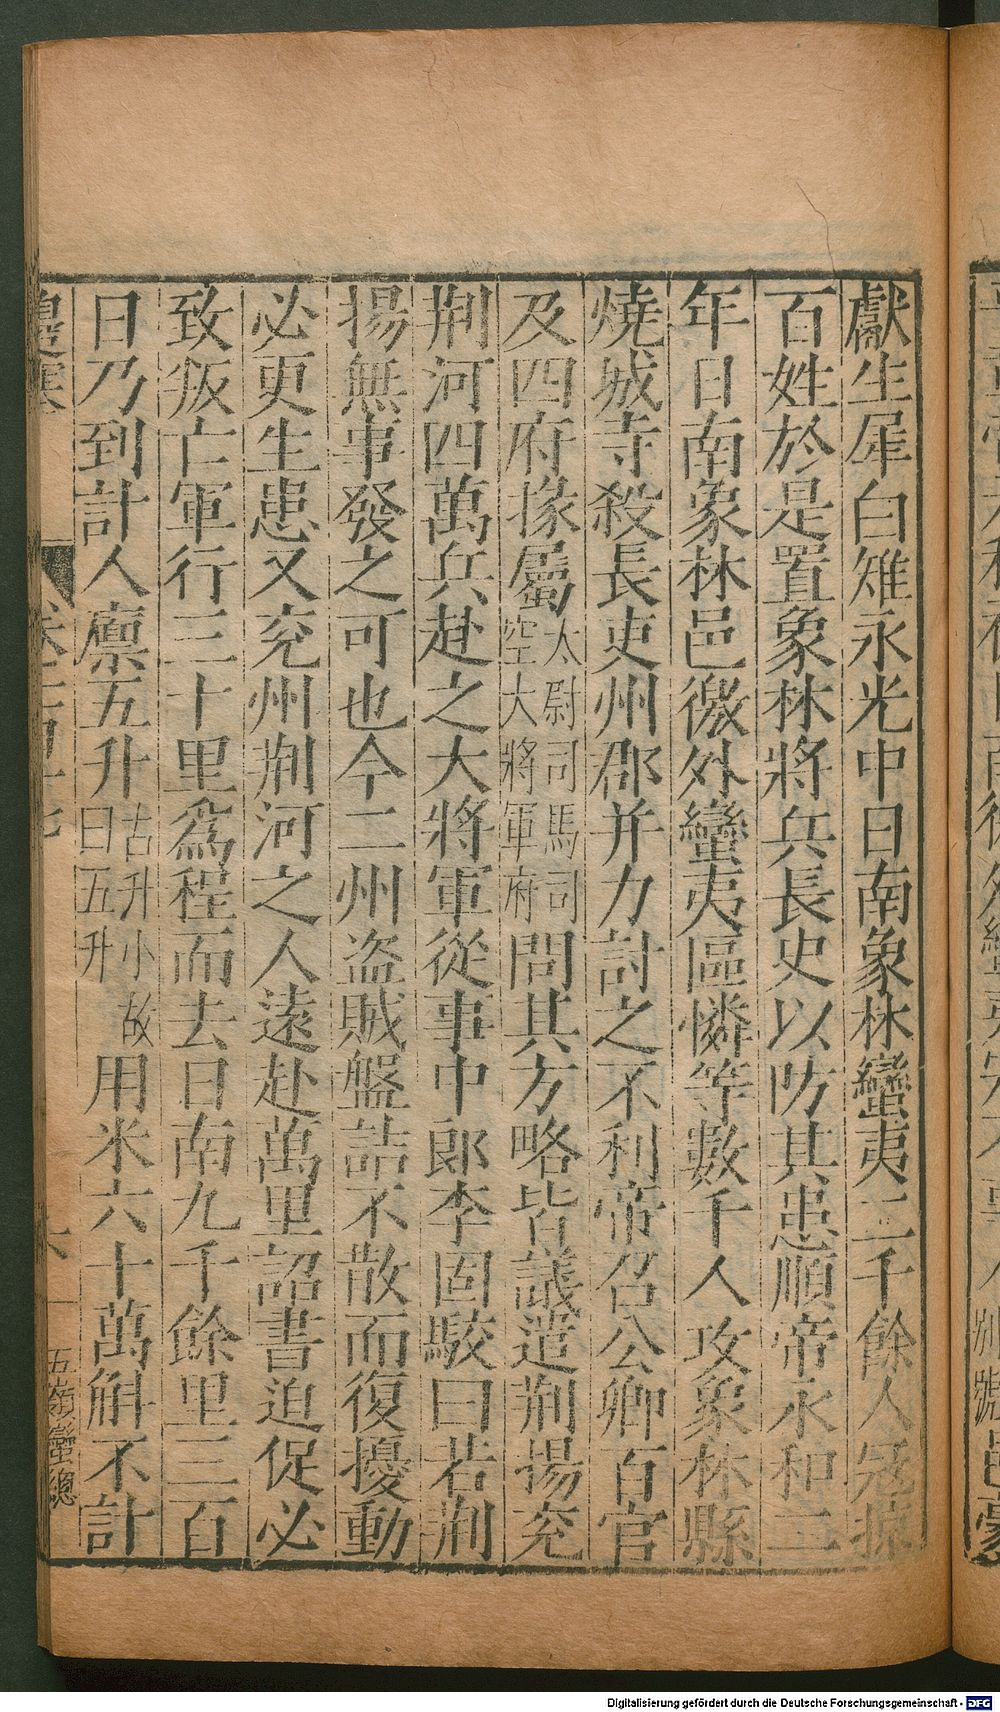 獻生犀白雉永光中日南象林蠻夷二千餘人冦掠
百姓於是置象林將兵長史以防其患順帝永和二
年日南象林邑徼外蠻夷區憐等數千人攻象林縣
燒城寺殺長吏州郡并力討之不利帝召公卿百官
及四府掾屬太尉司馬司空大將軍府問其方略皆議遣荆揚兖
荆河四萬兵赴之大將軍從事中郎李固駮曰若荆
揚無事發之可也今二州盗賊盤詰不散而復擾動
必更生患又兖州荆河之人遠赴萬里詔書迫促必
致叛亡軍行三十里爲程而去日南九千餘里三百
日乃到計人廪五升古升小故曰五升用米六十萬斛不計
五嶺蠻總
Digitalisierung gefördert durch die Deutsche Forschungsgemeinschaft - DFG